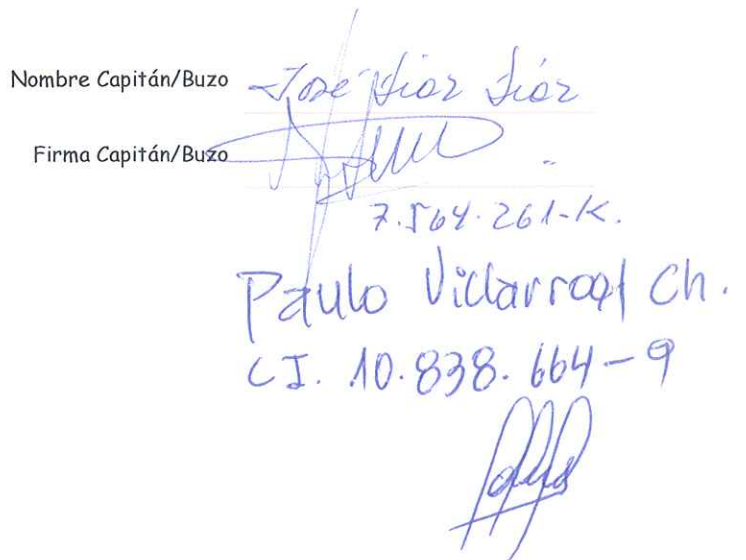 Nombre Capitán/Buzo José Díaz Díaz
Firma Capitán/Buzo
7.564.261-K.
Paulo Villarroel Ch.
CI. 10.838.664-9